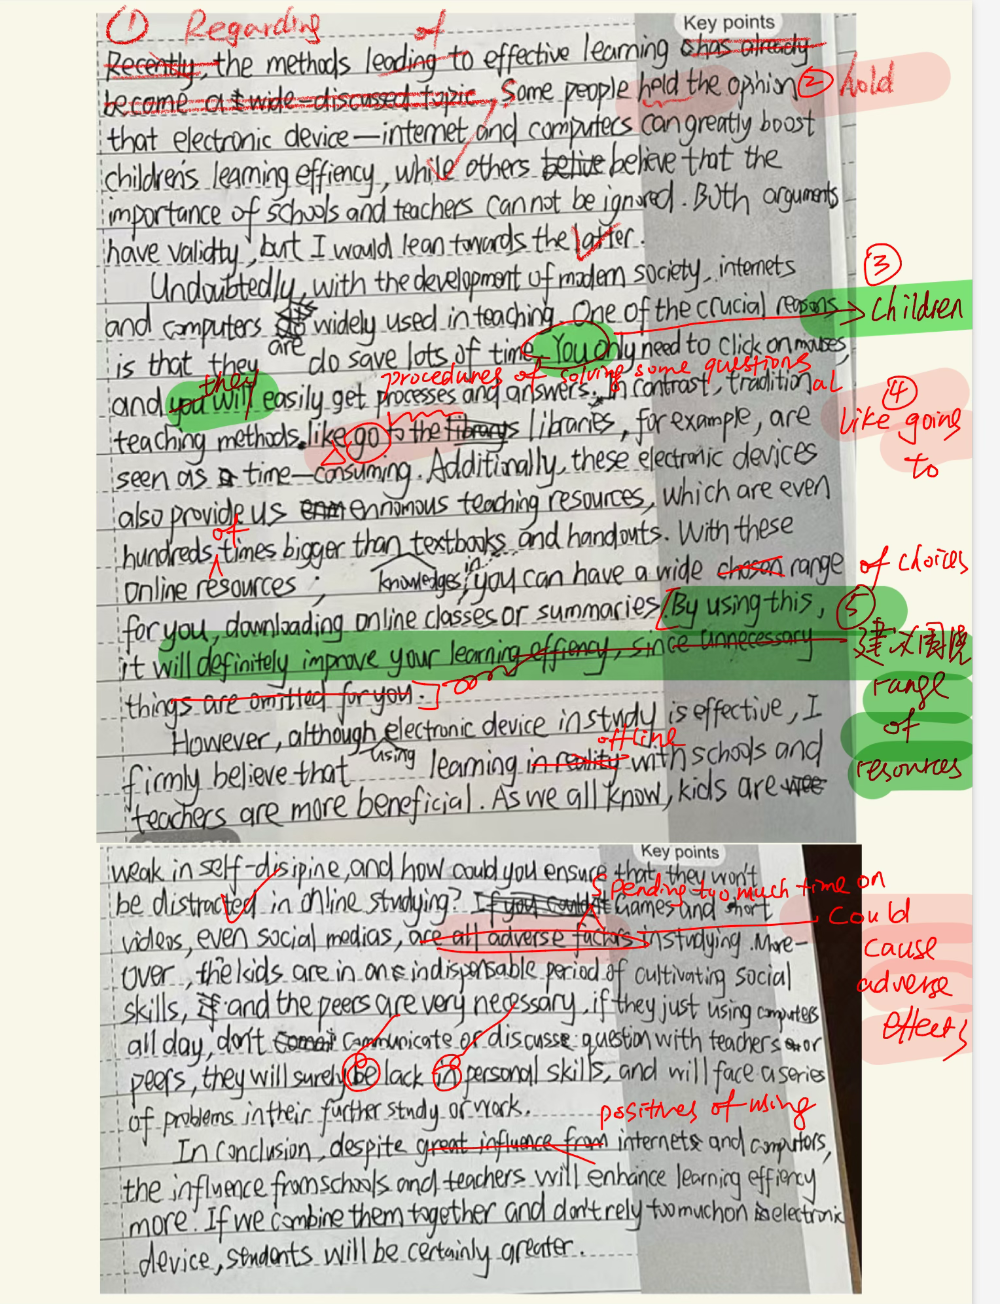 ① Regarding of
Key points
Recently, the methods leading to effective learning has already
become a wide-discussed topic, Some people held the opinion ② hold
that electronic device—internet and computers can greatly boost
children's learning effiency, while others belive believe that the
importance of schools and teachers cannot be ignored. Both arguments
have validty, but I would lean towards the latter.
③
Undoubtedly, with the development of modern society, internets
and computers are widely used in teaching. One of the crucial reasons children
is that they do save lots of time. You only need to click on mouses,
they procedures of solving some questions
and you will easily get processes and answers. In contrast, traditional
④
teaching methods, like go to the librarys libraries, for example, are like going
seen as a time-consuming. Additionally, these electronic devices to
also provide us enm ennomous teaching resources, which are even
of
hundreds times bigger than textbooks and handouts. With these
online resources; knowledges in, you can have a wide chosen range of choices
for you, downloading online classes or summaries. By using this, ⑤
it will definitely improve your learning effiency, since unnecessary 建议围绕
things are omitted for you. range
of
resources
However, although electronic device in study is effective, I
using offline
firmly believe that learning in reality with schools and
teachers are more beneficial. As we all know, kids are wee
Key points
weak in self-disipine, and how could you ensure that they won't
spending too much time on
be distracted in online studying? If you couldn't Games and short
videos, even social medias, are all adverse factors in studying. More- could
cause
adverse
effects
over, the kids are in one indispensable period of cultivating social
skills, and the peers are very necessary, if they just using computers
all day, don't communicate or discuss question with teachers or
peers, they will surely be lack in personal skills, and will face a series
of problems in their further study or work.
positives of using
In conclusion, despite great influence from internets and computors,
the influence from schools and teachers will enhance learning effiency
more. If we combine them together and don't rely too much on electronic
device, students will be certainly greater.